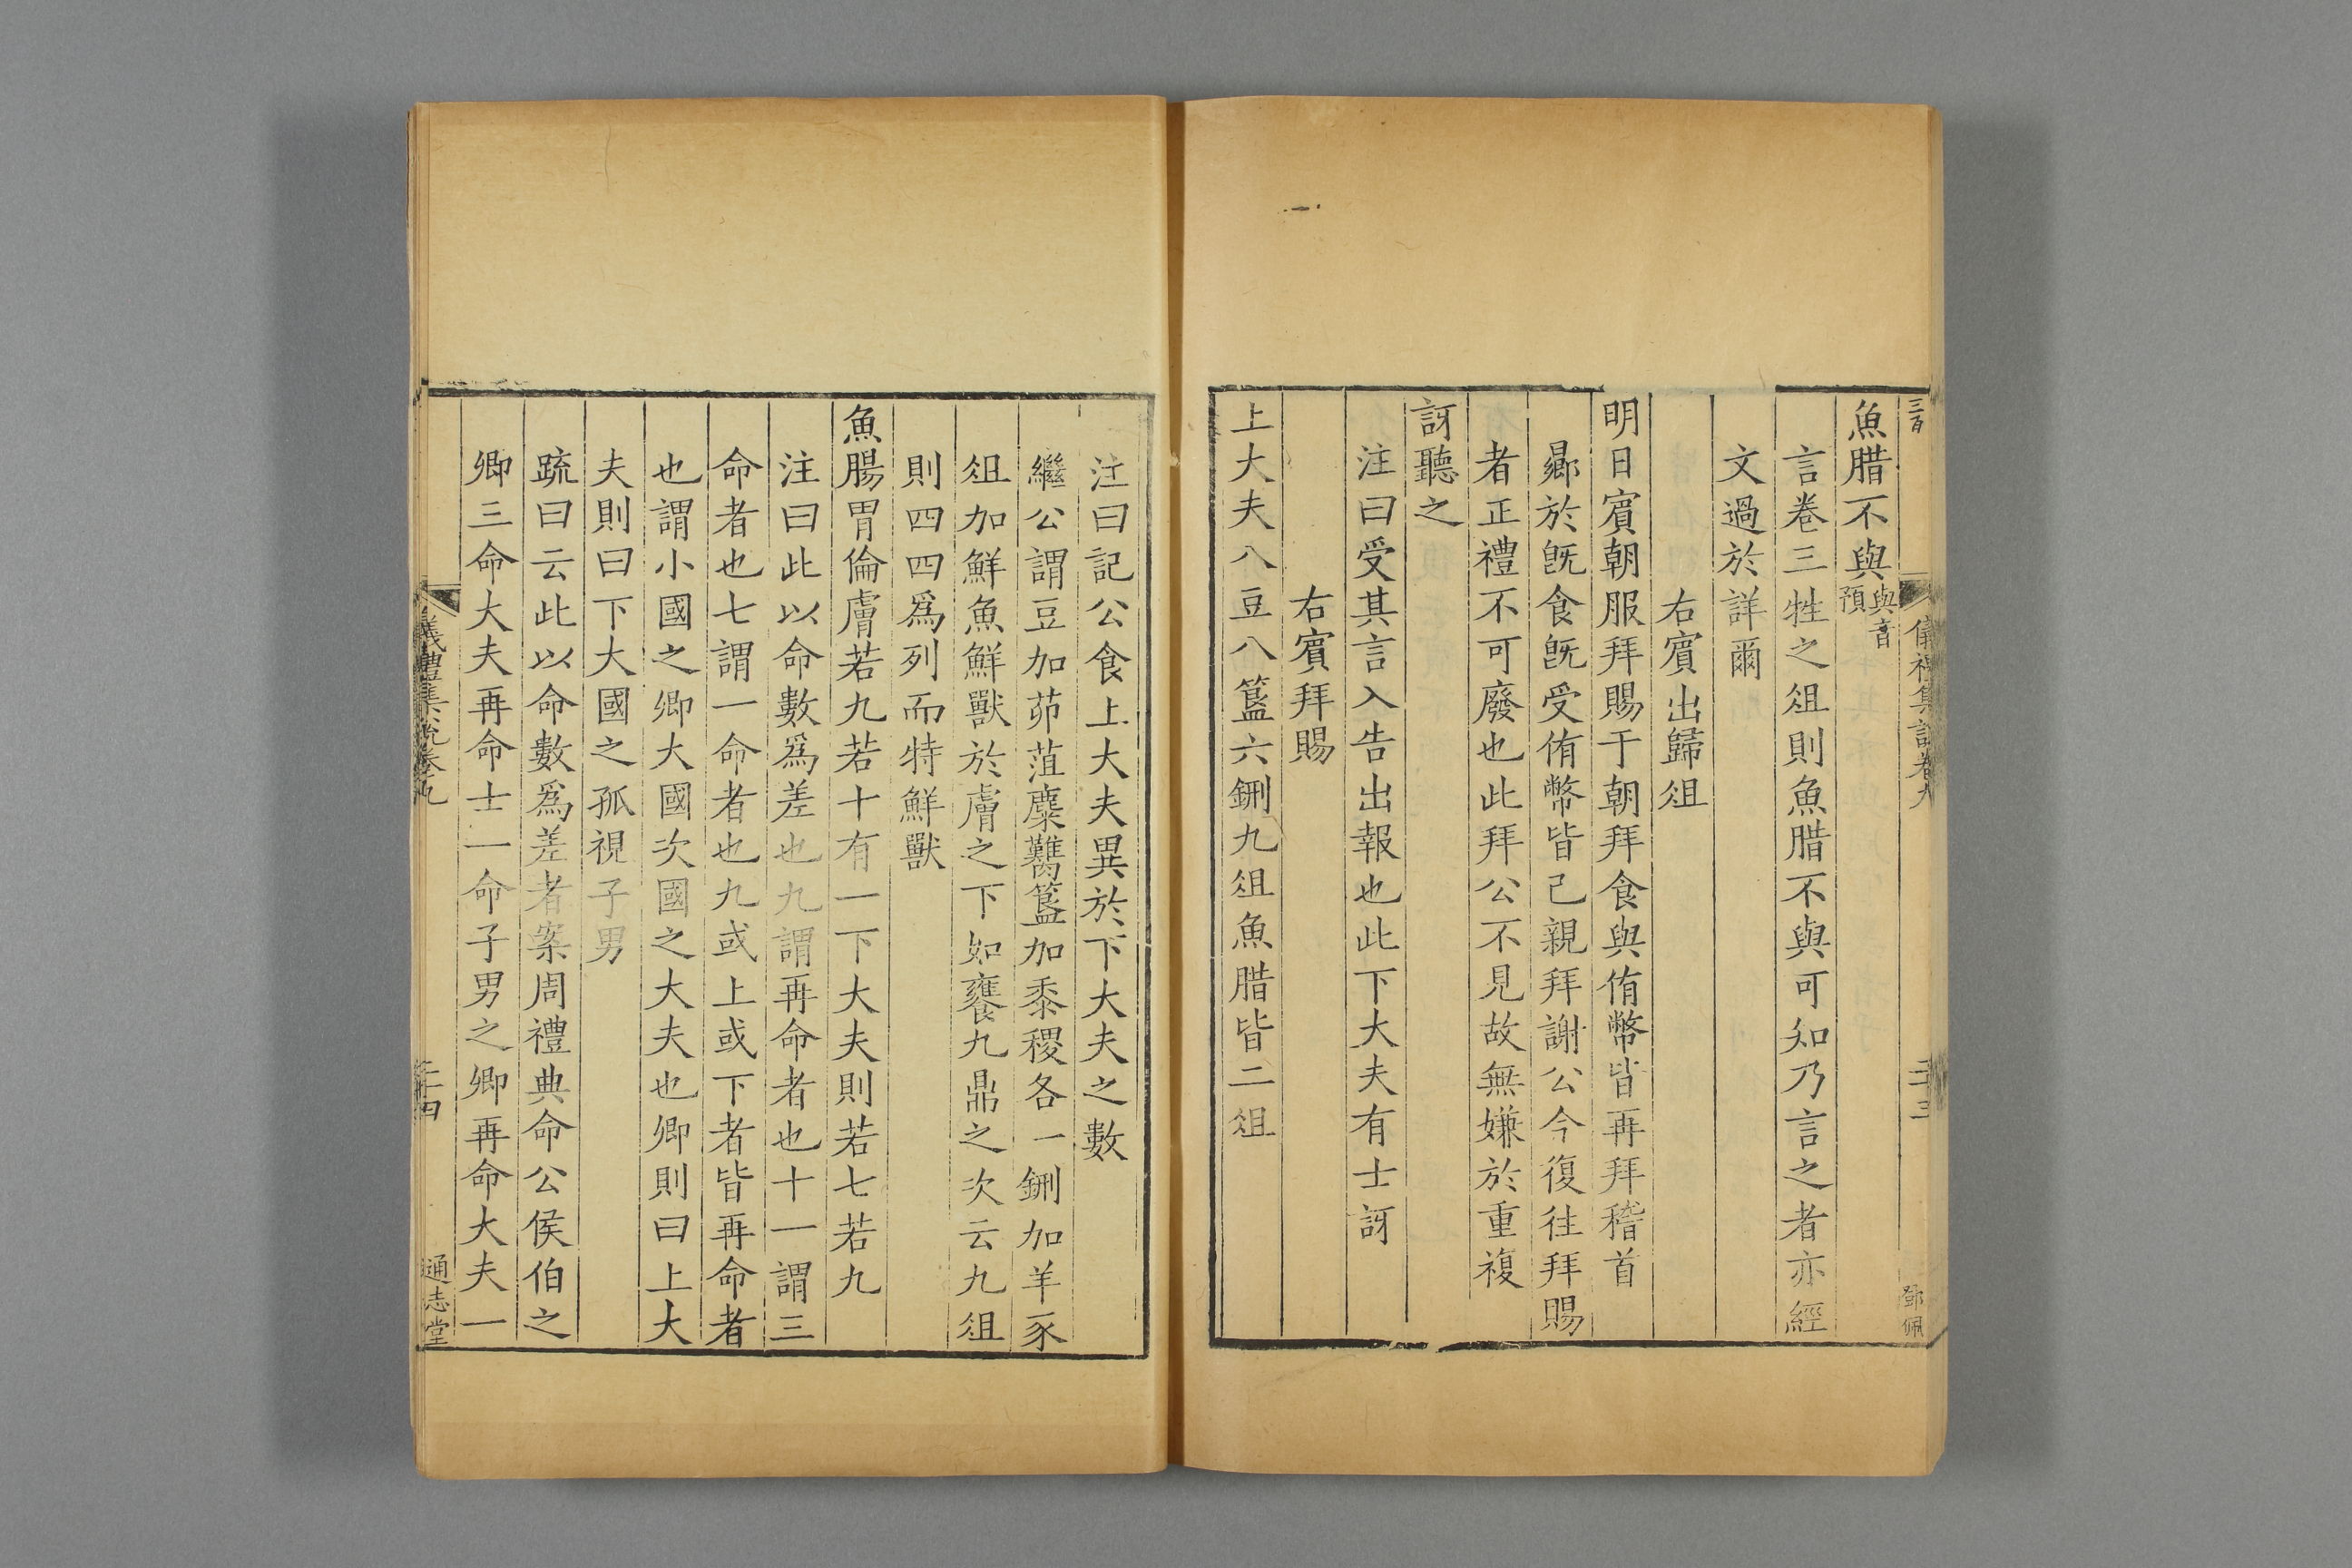 三百
儀禮集說卷九
二十三
鄧佩
魚腊不與與音預
言卷三牲之俎則魚腊不與可知乃言之者亦經
文過於詳爾
右賓出歸俎
明日賓朝服拜賜于朝拜食與侑幣皆再拜稽首
曏於旣食旣受侑幣皆已親拜謝公今復往拜賜
者正禮不可廢也此拜公不見故無嫌於重複
訝聽之
注曰受其言入告出報也此下大夫有士訝
右賓拜賜
上大夫八豆八簋六鉶九俎魚腊皆二俎
注曰記公食上大夫異於下大夫之數
繼公謂豆加茆菹麋臡簋加黍稷各一鉶加羊豕
俎加鮮魚鮮獸於膚之下如饔九鼎之次云九俎
則四四爲列而特鮮獸
魚腸胃倫膚若九若十有一下大夫則若七若九
注曰此以命數爲差也九謂再命者也十一謂三
命者也七謂一命者也九或上或下者皆再命者
也謂小國之卿大國次國之大夫也卿則曰上大
夫則曰下大國之孤視子男
疏曰云此以命數爲差者案周禮典命公侯伯之
卿三命大夫再命士一命子男之卿再命大夫一
儀禮集說卷九
二十四
通志堂